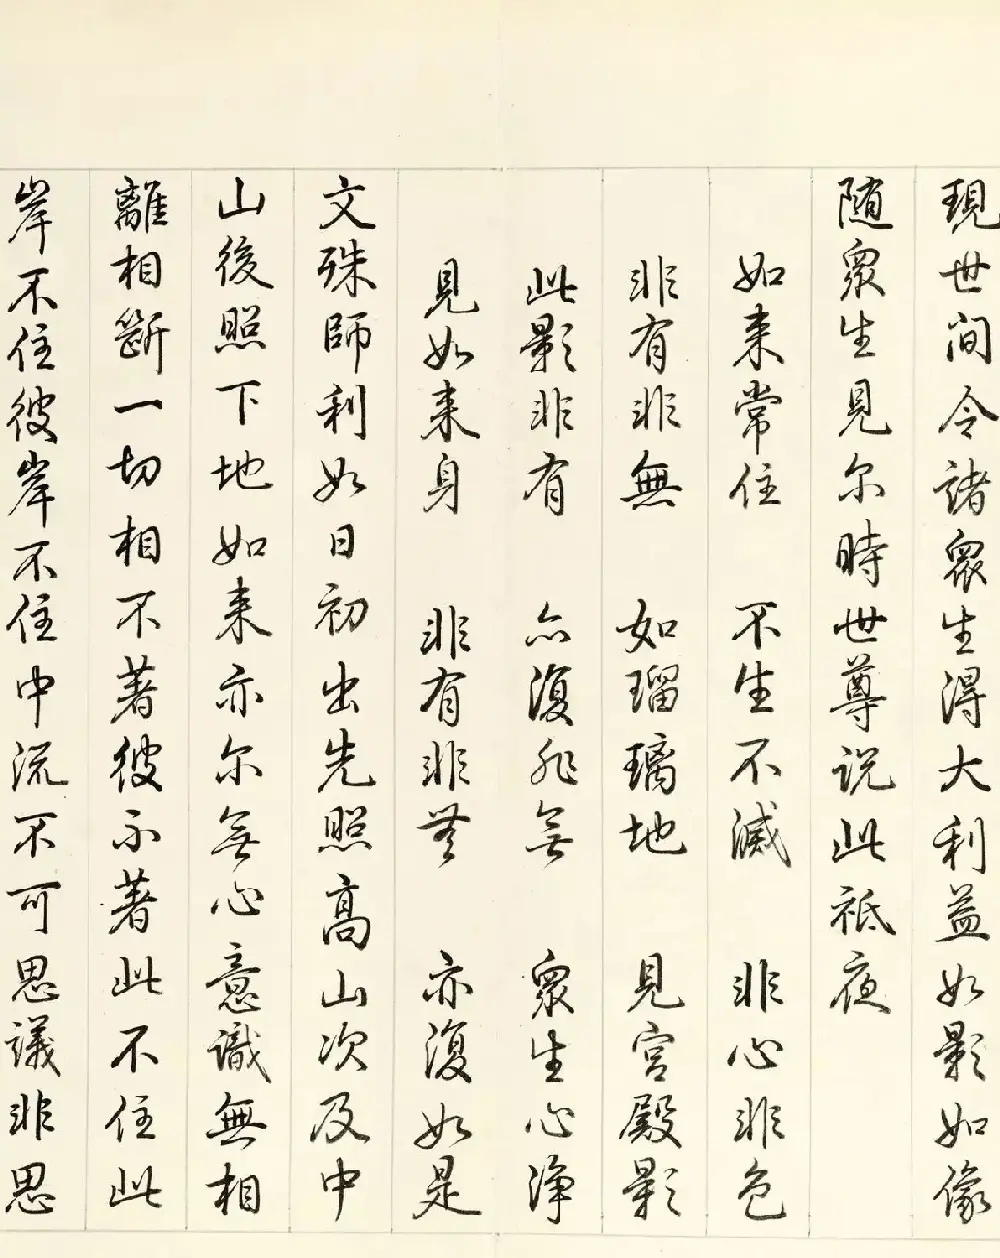 現世间令諸眾生得大利益如影如像
随眾生見尔時世尊说此祗夜
如来常住 不生不滅 非心非色
非有非無 如瑠璃地 見宮殿影
此影非有 亦復非無 眾生心淨
見如来身 非有非無 亦復如是
文殊師利如日初出先照高山次及中
山後照下地如来亦尔無心意識無相
離相斷一切相不著彼不著此不住此
岸不住彼岸不住中流不可思議非思